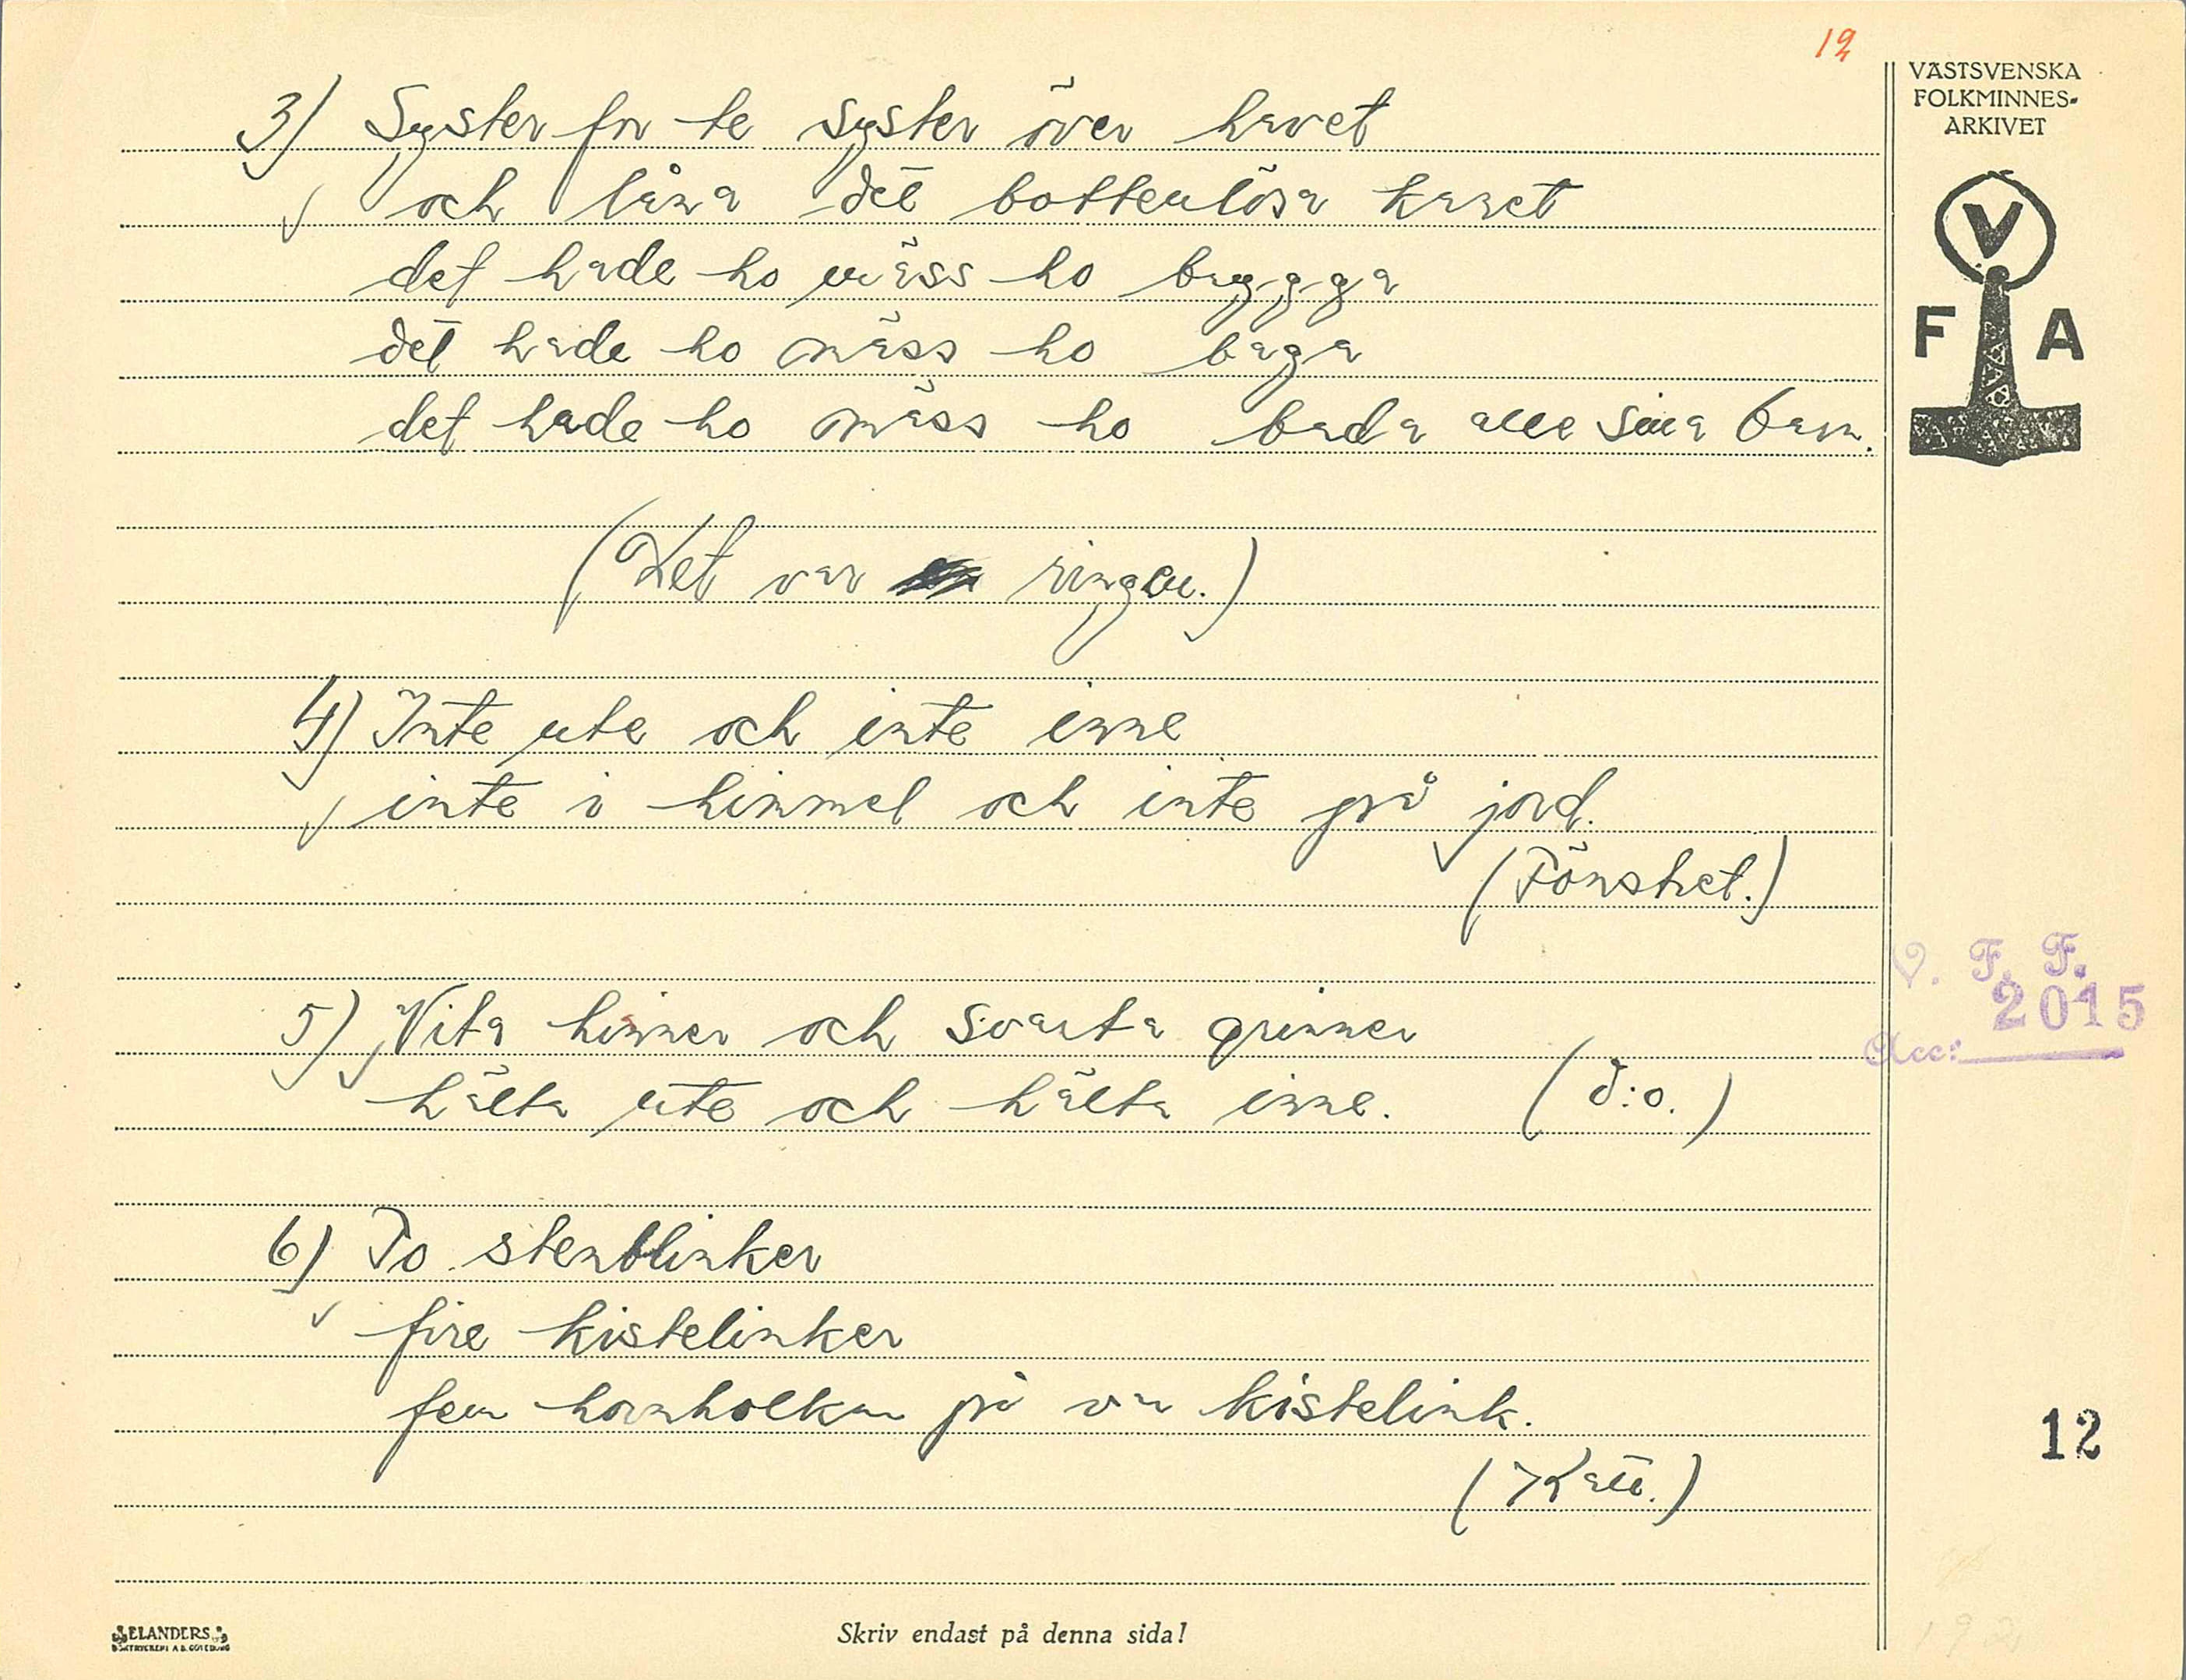 12
VÄSTSVENSKA
FOLKMINNES-
ARKIVET
V
F A
3) Syster for te syster över havet
och låna det bottenlösa karet
det hade ho mäss ho brygga
det hade ho mäss ho baga
det hade ho mäss ho bada alle sina barn.
(Det var ringen.)
4) Inte ute och inte inne
inte i himmel och inte på jord.
(Fönstret.)
5) Vita hinner och svarta grinner
hälta ute och hälta inne. (d:o.)
6) To stenblinker
fire kistelinker
fem hornholkar på var kistelink.
(Katt.)
V. F. F.
2015
Acc:
12
ELANDERS
BOKTRYCKERI A.B. GÖTEBORG
Skriv endast på denna sida!